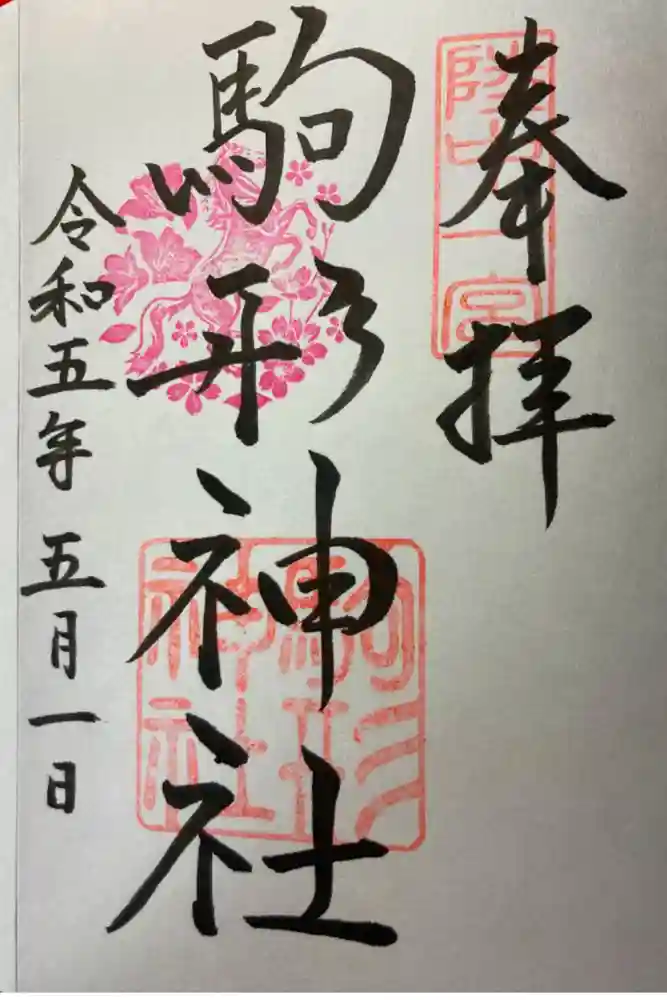 奉拝
陸中一宮
駒形神社
駒形
神社
令和五年五月一日